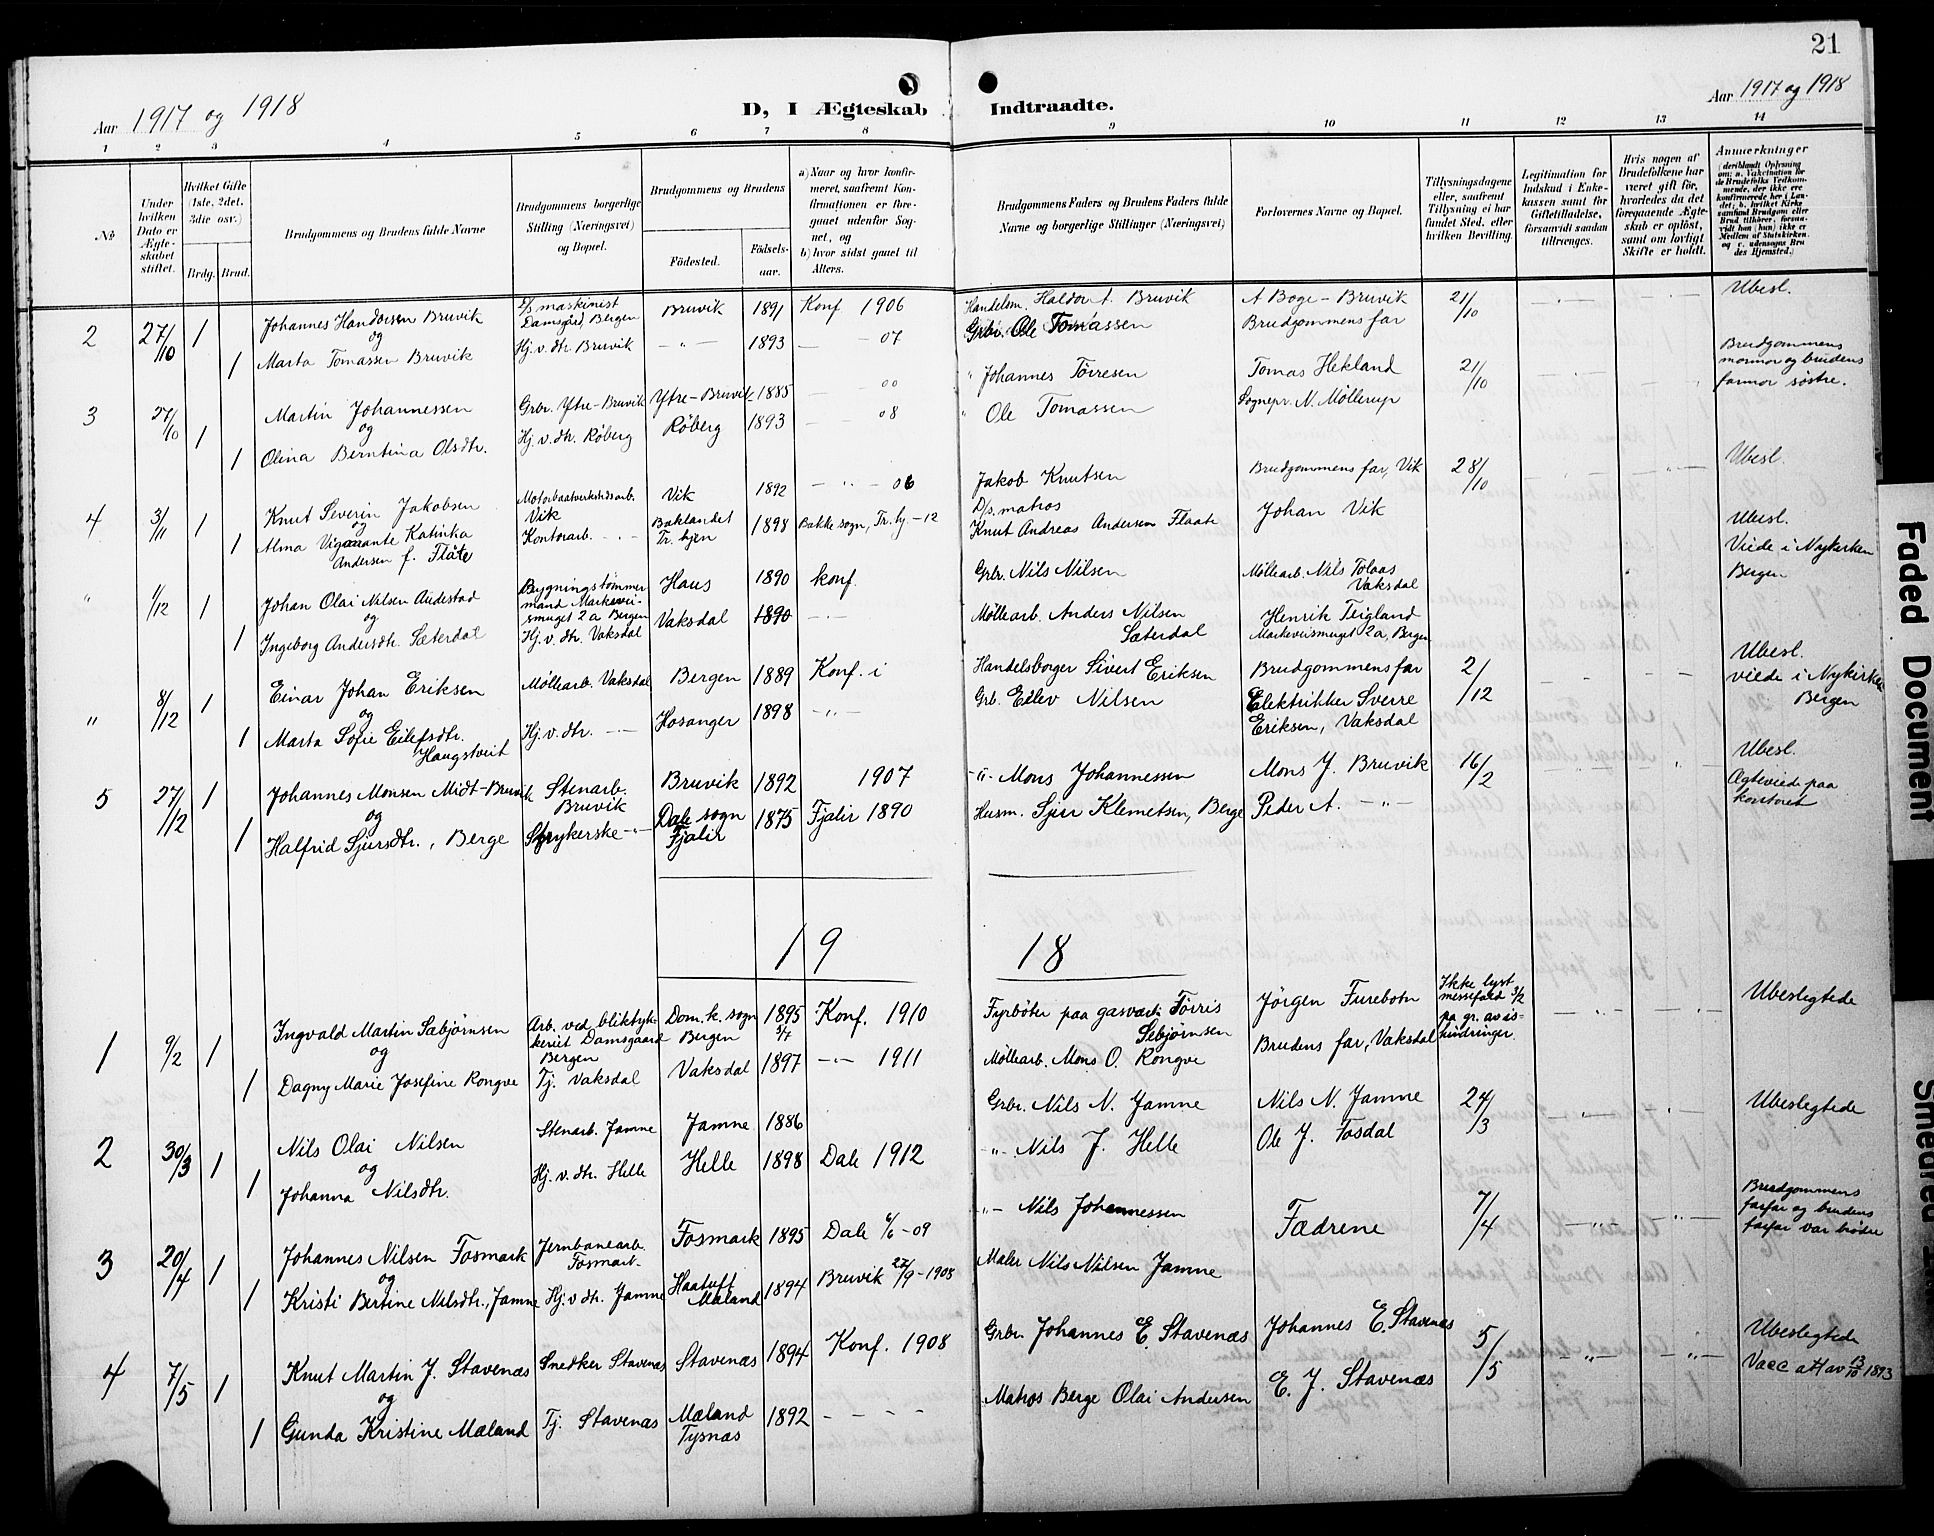 21
Aar 1917 og 1918
D, I Ægteskab Indtraadte.
Aar 1917 og 1918
1 2 3 4 5 6 7 8 9 10 11 12 13 14
№
Under hvilken Dato er Ægteskabet stiftet.
Hvilket Gifte (1ste, 2det, 3die osv.)
Brdg. Brud.
Brudgommens og Brudens fulde Navne
Brudgommens borgerlige Stilling (Næringsvei) og Bopæl.
Brudgommens og Brudens
Fødested. Fødselsaar.
a) Naar og hvor konfirmeret, saafremt Konfirmationen er foregaaet udenfor Sognet, og
b) hvor sidst gaaet til Alters.
Brudgommens Faders og Brudens Faders fulde Navne og borgerlige Stillinger (Næringsvei)
Forlovernes Navne og Bopæl.
Tillysningsdagene eller, saafremt Tillysning ei har fundet Sted, efter hvilken Bevilling.
Legitimation for Indskud i Enkekassen samt for Giftetilladelse, forsaavidt saadan tiltrænges.
Hvis nogen af Brudefolkene har været gift før, hvorledes da det foregaaende Ægteskab er opløst, samt om lovligt Skifte er holdt.
Anmerkninger
(deriblandt Oplysning om: a. Vakcination for de Brudefolks Vedkommende, der ikke ere konfirmerede her i Landet; b. hvilket Kirkesamfund Brudgom eller Brud tilhører, forsaavidt han (hun) ikke er Medlem af Statskirken, og c. udensogns Brudes Hjemsted.)
2 27/10 1 Johannes Handorsen Bruvik D/s maskinist Damsgård, Bergen Bruvik 1891 Konf 1906 Handelsm. Haldor A. Bruvik A Boge - Bruvik 21/10 Ubesl.
og
1 Marta Tomassen Bruvik Hj. v. dtr. Bruvik - " - 1893 — - 07 Grbr. Ole Tomassen Brudgommens far
3 27/10 1 Martin Johannessen Grbr. Ytre-Bruvik Ytre-Bruvik 1885 — 00 " Johannes Torresen Tomas Hekland 21/10 Brudgommens mormor og brudens farmor søstre.
og
1 Olina Berntina Olsdtr. Hj. v. dtr. Røberg Røberg 1893 — - 08 " Ole Tomassen Sognepr. N. Møllerup
4 3/11 1 Knut Severin Jakobsen Motorbaatverkstedsarb. Vik Vik 1892 - " - 06 Jakob Knutsen Brudgommens far, Vik 28/10 Ubesl.
og
1 Alma Andersen f. Flåte Kontorarb. - " - Baklandet Tr.hjem 1898 Bakke sogn, Tr.hj. - 12 D/s. matros Knut Andreas Andersen Flaate Johan Vik
" 1/12 1 Johan Olai Nilsen Andestad Bygningstømmermand Markeveismuget 2 a Bergen Haus 1890 konf. Grbr. Nils Nilsen Møllearb. Nils Tolaas Vaksdal Ubesl. Viede i Nykirken Bergen
og
1 Ingeborg Andersdtr. Sæterdal Hj. v. dtr. Vaksdal Vaksdal 1890 - " - Møllearb. Anders Nilsen Sæterdal Henrik Teigland Markeveismuget 2 a, Bergen
" 8/12 1 Einar Johan Eriksen Møllearb. Vaksdal Bergen 1889 Konf. i Handelsborger Sivert Eriksen Brudgommens far 2/12 Ubesl. viede i Nykirken Bergen
og
1 Marta Sofie Eilefsdtr. Haugstveit Hj. v. dtr. - " - Hosanger 1898 - " - Grb. Eilev Nilsen Elektrikker Sverre Eriksen, Vaksdal
5 27/12 1 Johannes Monsen Midt-Bruvik Stenarb. Bruvik Bruvik 1892 1907 - " - Mons Johannessen Mons J. Bruvik 16/2 Ubesl. Ægteviede paa kontoret
og
1 Halfrid Sjursdtr., Berge Strykerske - " - Dale sogn Fjalir 1875 Fjalir 1890 Husm. Sjur Klemetsen, Berge Peder A. - " -
1918
1 9/2 1 Ingvald Martin Sæbjørnsen Arb. ved bliktrykkeriet Damsgaard Bergen Dom. k. sogn Bergen 1895 5/7 Konf. 1910 Fyrbøter paa gasverk: Torris Sebjørnsen Jørgen Furebotn Ikke lyst messefald 3/2 pa gr. av ishindringer. Ubeslegtede
og
1 Dagny Marie Josefine Rongve Tj. Vaksdal Vaksdal 1897 - " - 1911 Møllearb. Mons O. Rongve Brudens far, Vaksdal
2 30/3 1 Nils Olai Nilsen Stenarb. Jamne Jamne 1886 Grbr. Nils N. Jamne Nils N. Jamne 24/3 Ubeslegtede
og
1 Johanna Nilsdtr. Hj. v. dtr. Helle Helle 1898 Dale 1912 - " - Nils J. Helle Ole J. Fosdal
3 20/4 1 Johannes Nilsen Fosmark Jernbanearb. Fosmark Fosmark 1895 Dale 6/6 - 09 - " - Nils Johannessen Fædrene 7/4 Brudgommens farfar og brudens farfar var brødre
og
1 Kristi Bertine Nilsdtr., Jamne Hj. v. dtr. Jamne Haatuft Mæland 1894 Bruvik 27/9 - 1908 Maler Nils Nilsen Jamne
4 7/5 1 Knut Martin J. Stavenæs Snedker Stavenæs Stavenæs 1894 Konf. 1908 Grbr. Johannes E. Stavenæs Johannes E. Stavenæs 5/5 Ubeslegtede Vacc att av 13/10 1893
og
1 Gunda Kristine Mæland Tj. Stavenæs Mæland Tysnæs 1892 - - - - Matros Berge Olai Andersen E. J. Stavenæs
Faded Document